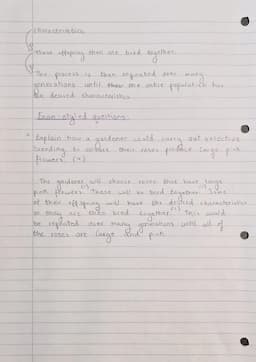 characteristics.
These offspring then are bred together.
The process is then repeated over many
generations until the entire population has
the desired characteristics.
Exam-styled questions:
Explain how a gardener could carry out selective
breeding to ensure their roses produce large pink
flowers. (4)
The gardener will choose roses that have large
pink flowers.(1) These will be bred together.(1) Some
of their offspring will have the desired characteristics
so they are then bred together.(1) This would
be repeated over many generations until all of
the roses are large and pink.